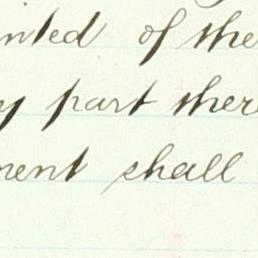 inted of the
y part there
ment shall